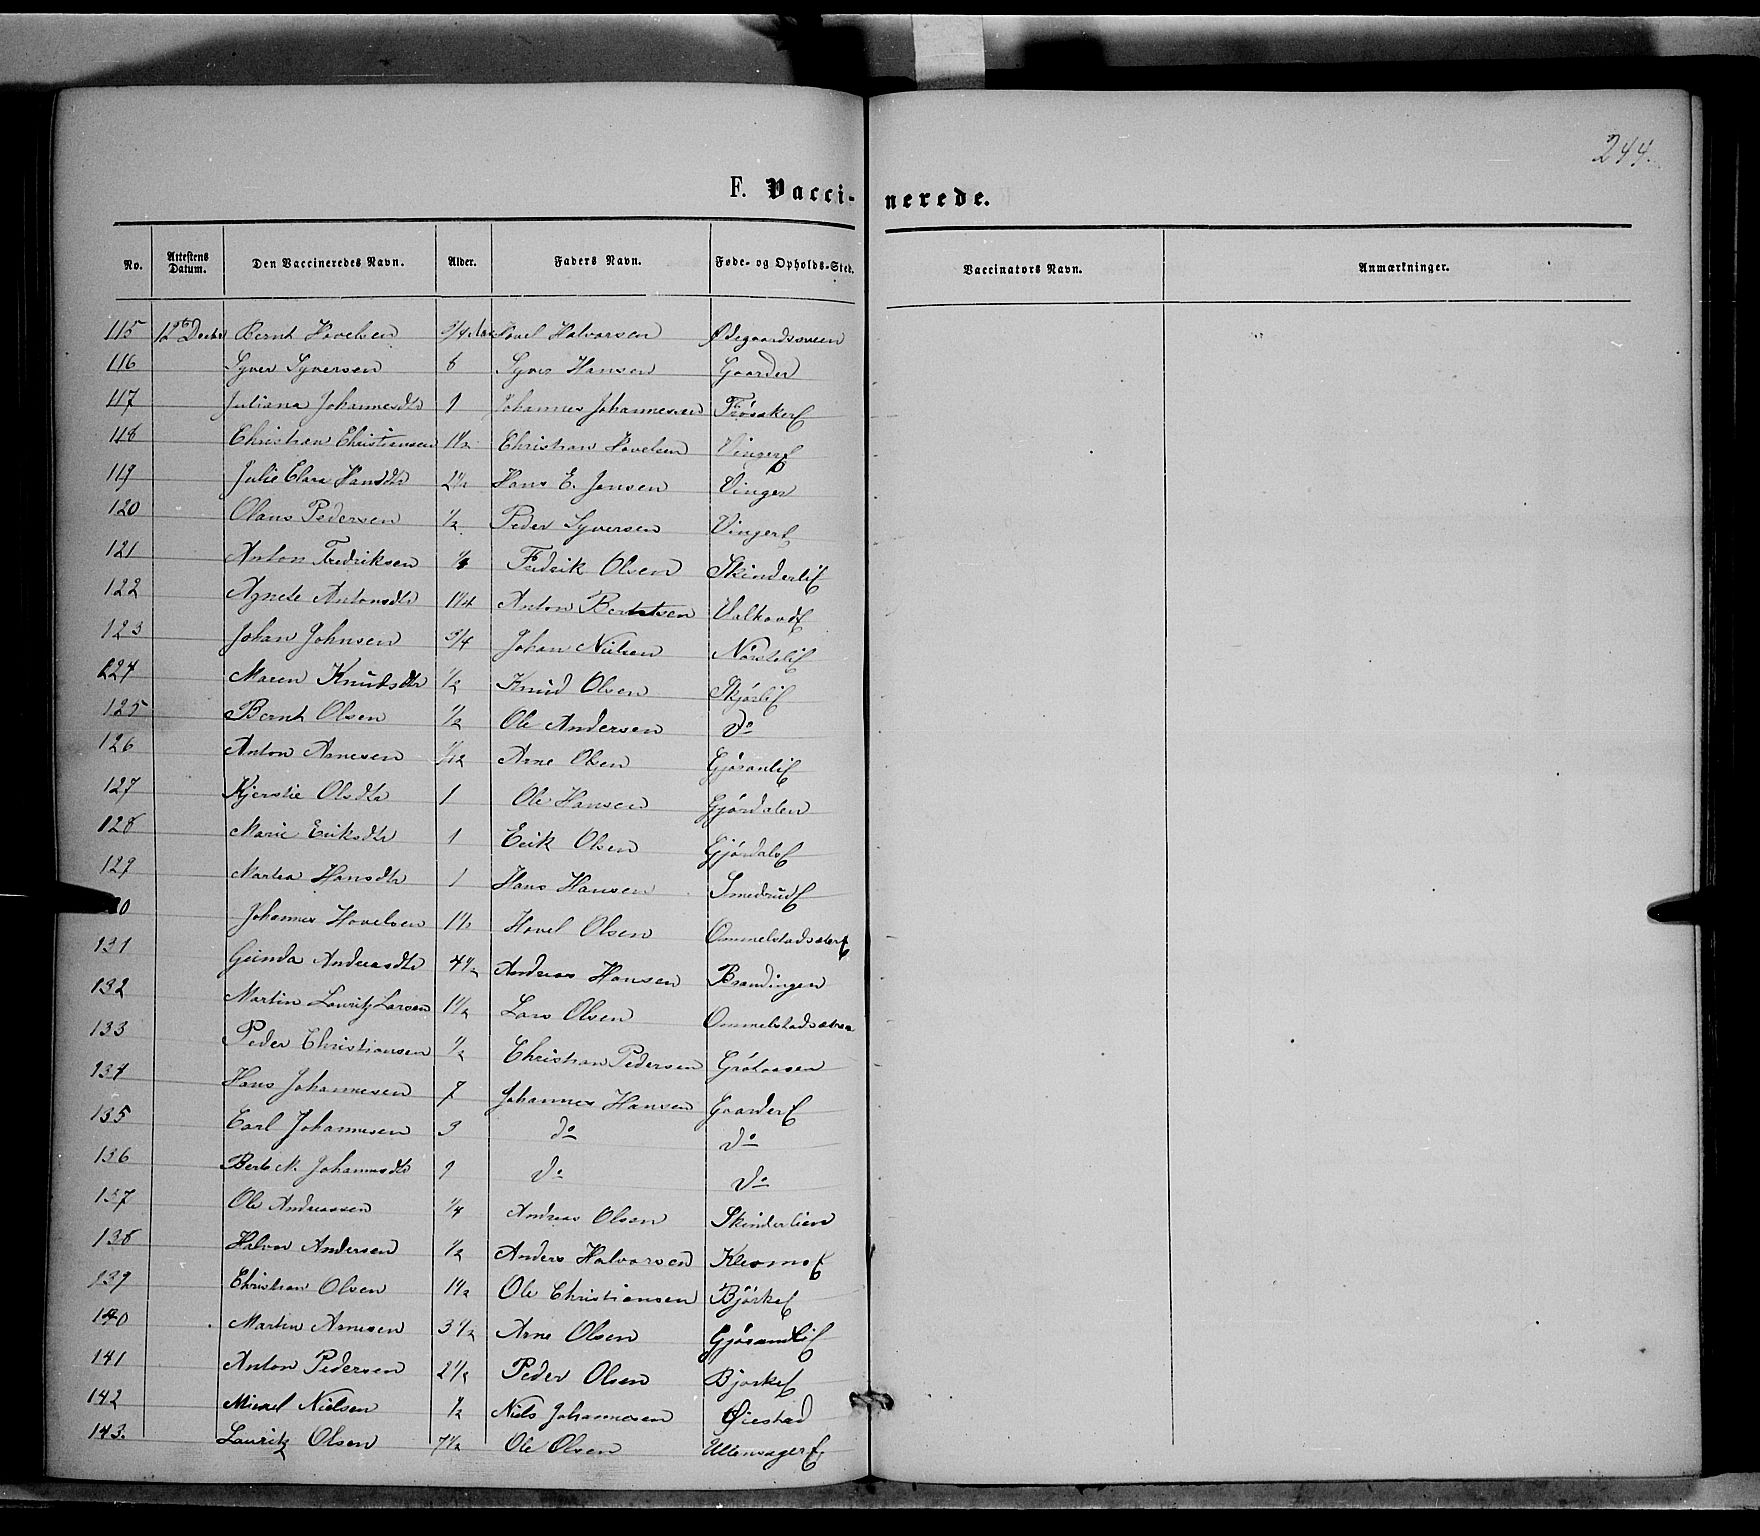 244.
F. Vacci- nerede.
No. Attestens Datum. Den Vaccineredes Navn. Alder. Faders Navn. Føde- og Opholds-Sted. Vaccinators Navn. Anmærkninger.
115 12te Decbr Bernt Hovelsen 3/4 Aar Hovel Halvorsen Ødegaardssveen
116 Syver Syversen 6 Syver Hansen Gaarder
117 Juliana Johannesdtr 1 Johannes Johannesen Frøsaker
118 Christian Christiansen 1 1/2 Christian Hovelsen Vinger
119 Julie Clara Hansdtr 2 1/2 Hans E. Jensen Vinger
120 Olaus Pedersen 1/2 Peder Syversen Vinger
121 Anton Fredriksen Fredrik Olsen Skinderlie
122 Agnete Antonsdtr 1 1/4 Anton Berntsen
123 Johan Johnsen 3/4 Johan Nielsen Nørstelie
124 Maren Knudsdtr 1/2 Knud Olsen Skjørlie
125 Bernt Olsen 1/2 Ole Andersen do
126 Anton Arnesen 1/12 Arne Olsen Gjøsanlie
127 Kjerstie Olsdtr 1 Ole Hansen Gjørdalen
128 Marie Eriksdtr 1 Erik Olsen Gjørdals
129 Martea Hansdtr 1 Hans Hansen Smedrud
30 Johannes Hovelsen 1 1/2 Hovel Olsen Ommelstadsæter
131 Gunda Andreasdtr 4 1/2 Andreas Hansen Brandingen
132 Martin Lauritz Larsen 1 1/2 Lars Olsen Ommelstadsætra
133 Peder Christiansen 1/2 Christian Pedersen Grøtaasen
134 Hans Johannesen 7 Johannes Hansen Gaarder
135 Carl Johannesen 3 do do
136 Berte M. Johannesdtr 1 do do
137 Ole Andreassen 1/4 Andreas Olsen Skinderlien
138 Halvor Andersen 1/2 Anders Halvorsen Klesmo
139 Christian Olsen 1 1/2 Ole Christiansen Bjørke
140 Martin Arnesen 3 1/2 Arne Olsen Gjøsanlie
141 Anton Pedersen 2 1/2 Peder Olsen Bjørke
142 Mikael Nielsen 1/2 Niels Johannesen Øiestad
143. Lauritz Olsen 7 1/2 Ole Olsen Ullensager